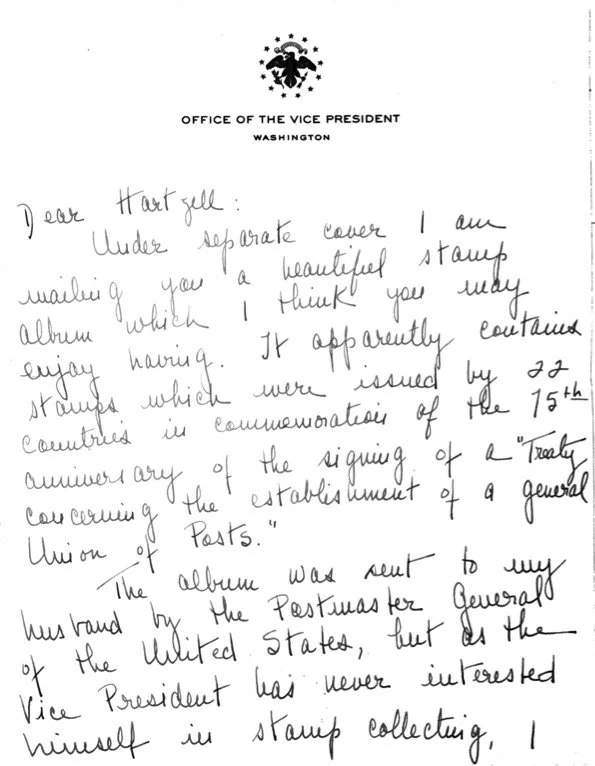 OFFICE OF THE VICE PRESIDENT
WASHINGTON
Dear Hartzell:
Under separate cover I am
mailing you a beautiful stamp
album which I think you may
enjoy having. It apparently contains
stamps which were issued by 22
countries in commemoration of the 75th
anniversary of the signing of a "Treaty
concerning the establishment of a general
Union of Posts."
The album was sent to my
husband by the Postmaster General
of the United States, but as the
Vice President has never interested
himself in stamp collecting, I